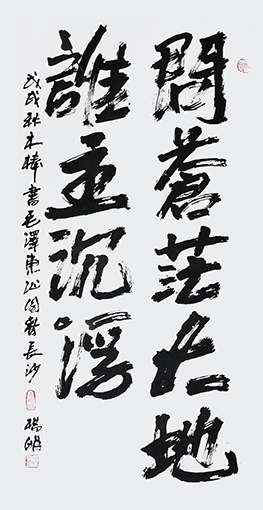 問蒼茫大地
誰主沉浮
戊戌秋木棒書毛澤東沁園春長沙